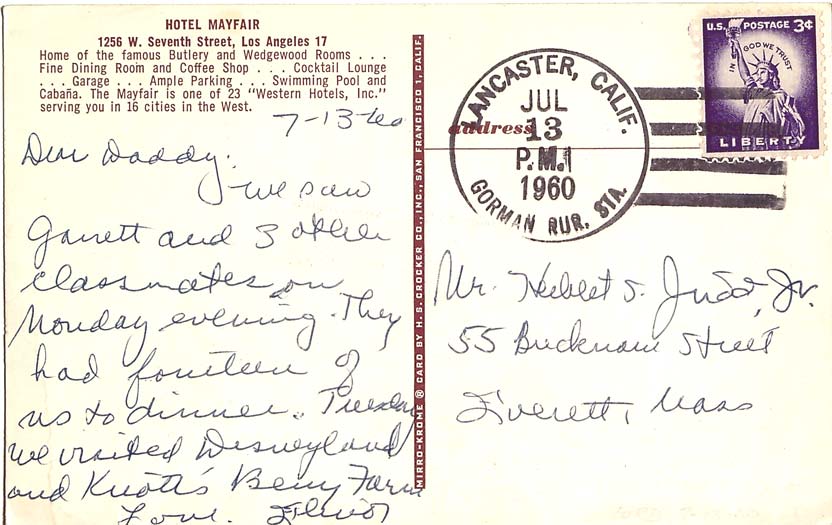 HOTEL MAYFAIR
1256 W. Seventh Street, Los Angeles 17
Home of the famous Butlery and Wedgewood Rooms . . .
Fine Dining Room and Coffee Shop . . . Cocktail Lounge
. . . Garage . . . Ample Parking . . . Swimming Pool and
Cabaña. The Mayfair is one of 23 "Western Hotels, Inc."
serving you in 16 cities in the West.
7-13-60
Dear Daddy,
We saw
Garrett and 3 other
classmates on
Monday evening. They
had fourteen of
us to dinner. Tuesday
we visited Disneyland
and Knott's Berry Farm
Love,
MIRRO-KROME ® CARD BY H. S. CROCKER CO., INC., SAN FRANCISCO 1, CALIF.
address
LANCASTER, CALIF.
JUL
13
P.M.
1960
GORMAN RUR. STA.
U.S. POSTAGE 3¢
IN GOD WE TRUST
LIBERTY
Mr. Herbert S. Judd, Jr.
55 Bucknam Street
Everett, Mass